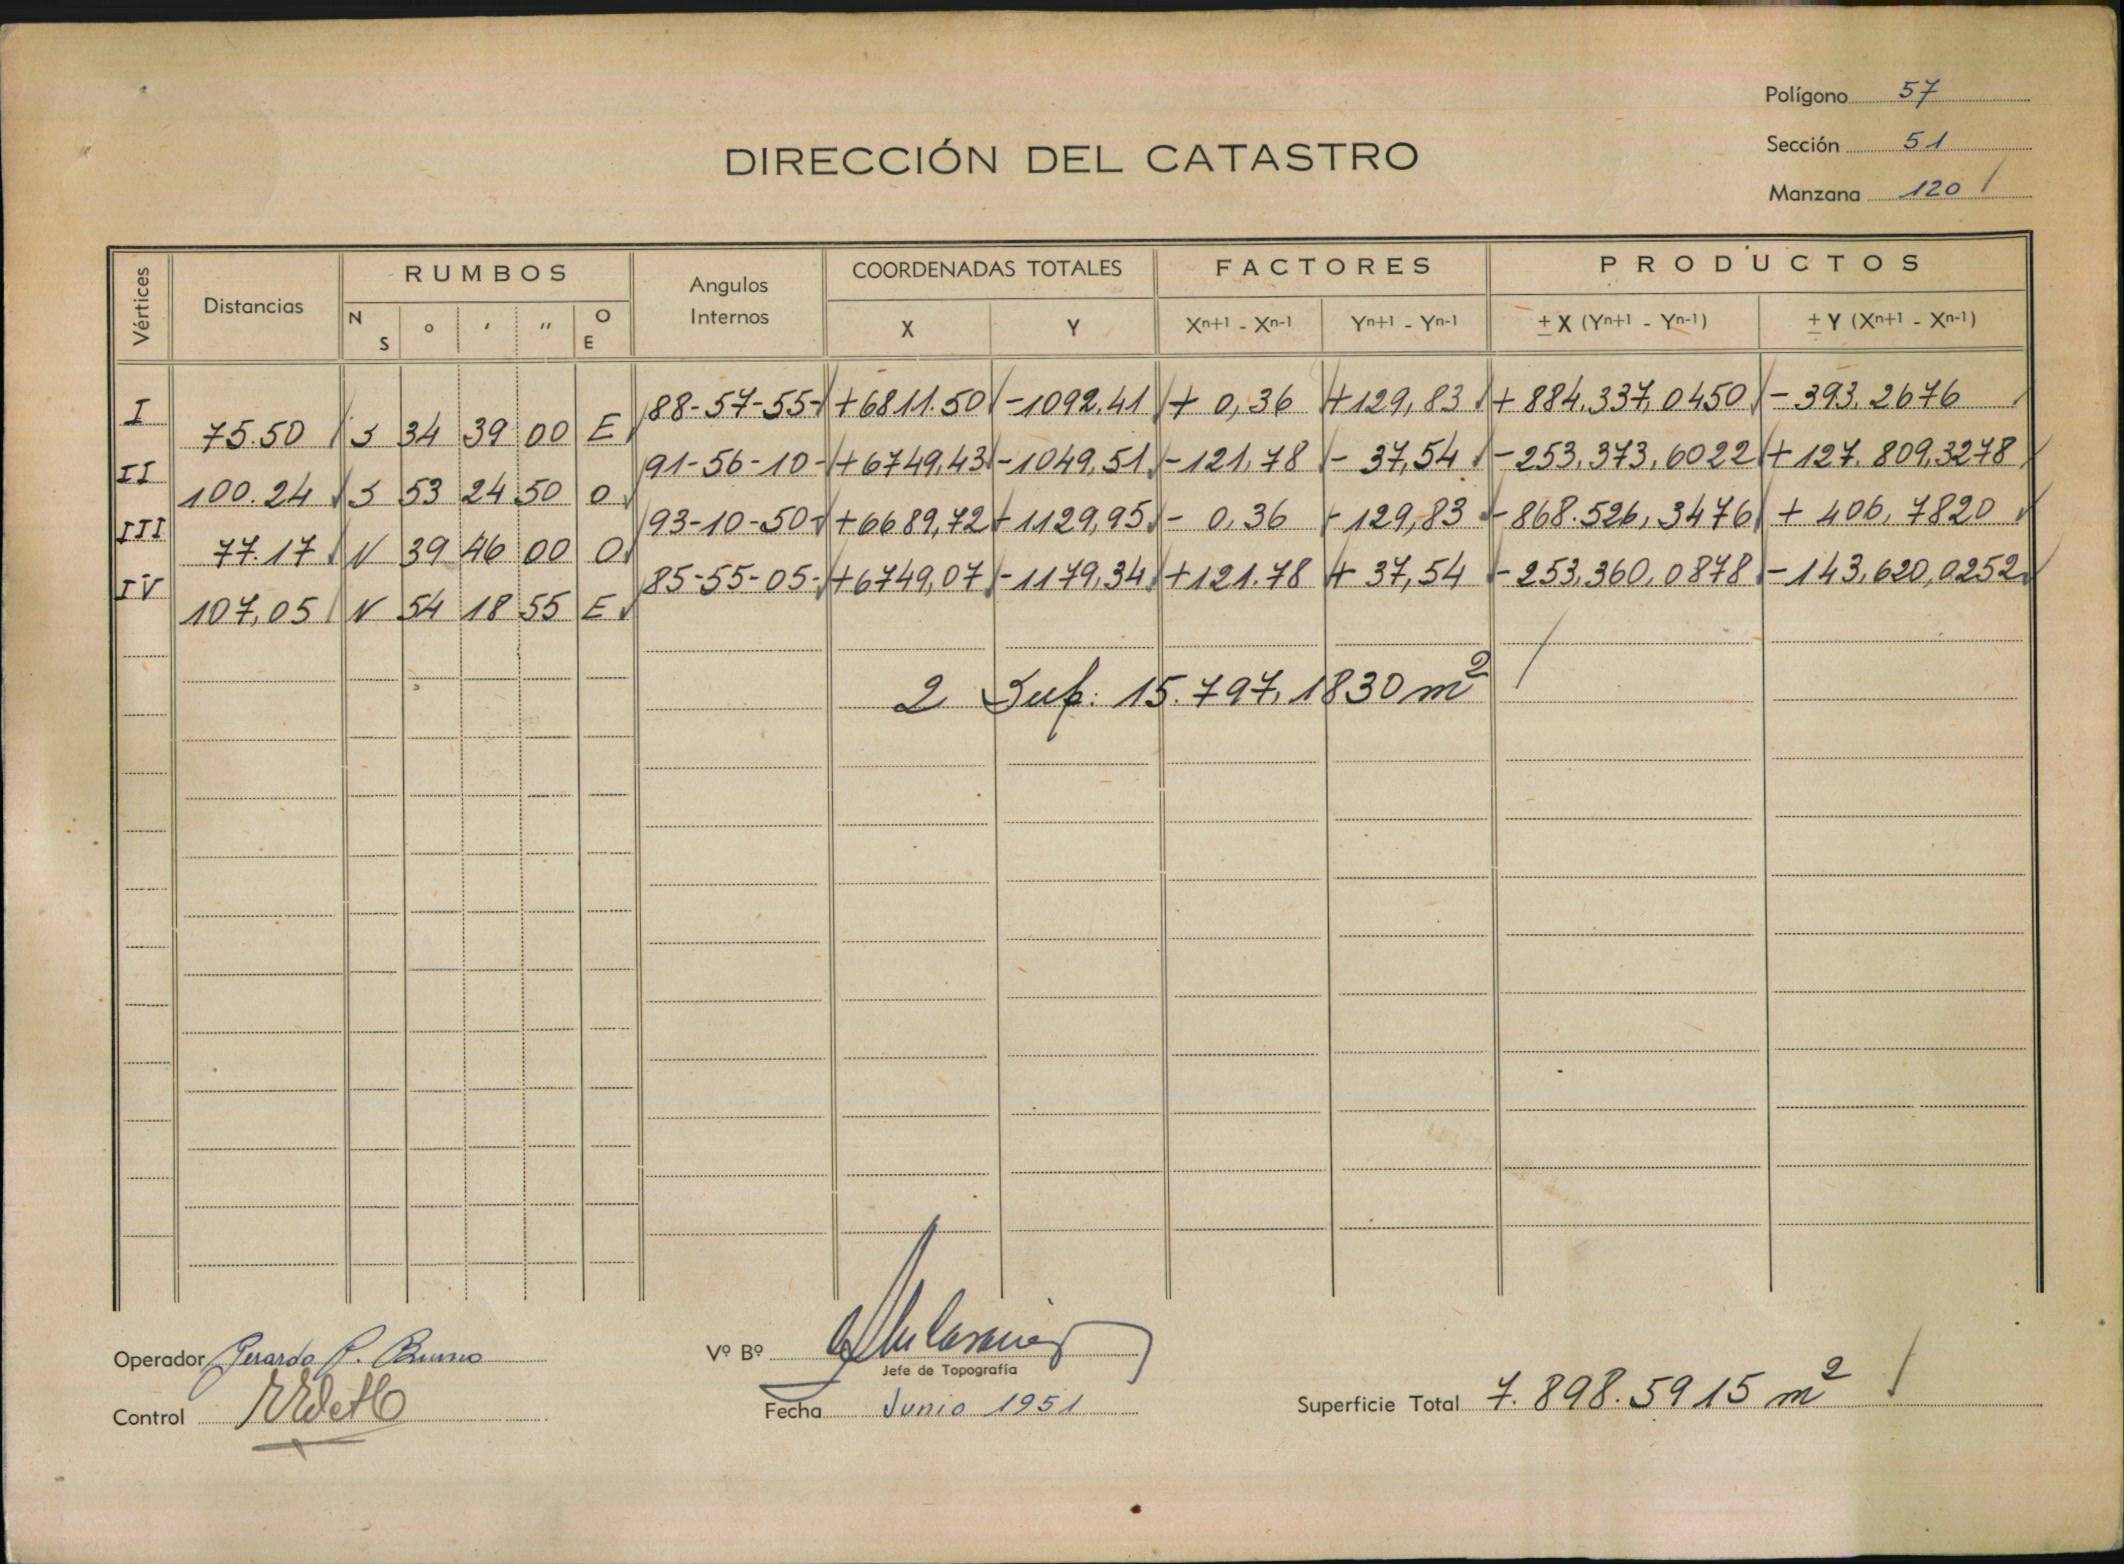 Polígono 57
DIRECCIÓN DEL CATASTRO
Sección 51
Manzana 120 /
Vértices Distancias RUMBOS Angulos Internos COORDENADAS TOTALES FACTORES PRODUCTOS
N S ° ' '' O E X Y Xn+1 - Xn-1 Yn+1 - Yn-1 ± X (Yn+1 - Yn-1) ± Y (Xn+1 - Xn-1)
I 88-57-55 +6811.50 -1092.41 + 0,36 +129,83 +884.337,0450 -393.2676
75.50 S 34 39 00 E
II 91-56-10 +6749,43 -1049,51 -121,78 - 37,54 -253.373,6022 +127.809,3278
100.24 S 53 24 50 O
III 93-10-50 +6689,72 +1129,95 - 0,36 -129,83 -868.526,3476 + 406,7820
77.17 N 39 46 00 O
IV 85-55-05 +6749,07 -1179,34 +121.78 + 37,54 -253.360,0878 -143.620,0252
107,05 N 54 18 55 E
2 Sup: 15.797,1830 m2 /
Operador Gerardo P. Bruno
Vº Bº
Jefe de Topografía
Control
Fecha Junio 1951
Superficie Total 7.898.5915 m2 /